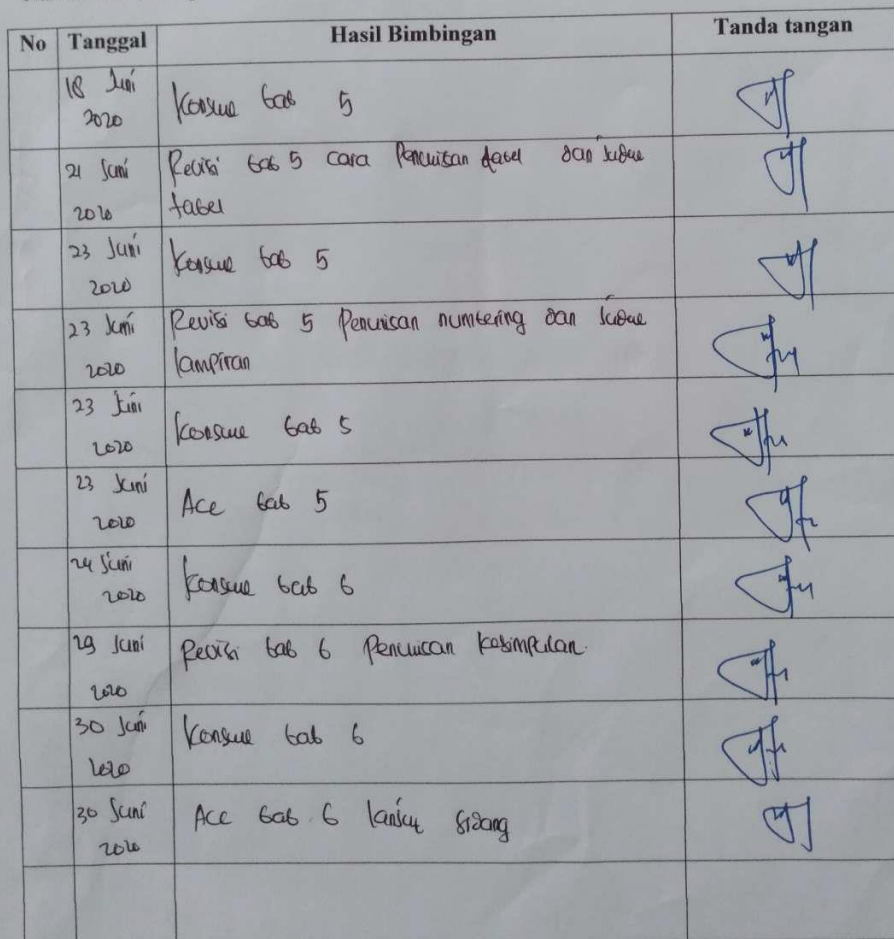 No Tanggal Hasil Bimbingan Tanda tangan
18 Juni
2020
Konsul bab 5
21 Juni
2020
Revisi bab 5 cara Penulisan tabel dan judul
tabel
23 Juni
2020
Konsul bab 5
23 Juni
2020
Revisi bab 5 Penulisan numbering dan judul
lampiran
23 Juni
2020
Konsul bab 5
23 Juni
2020
Acc bab 5
24 Juni
2020
Konsul bab 6
29 Juni
2020
Revisi bab 6 Penulisan kesimpulan.
30 Juni
2020
Konsul bab 6
30 Juni
2020
Acc bab 6 lanjut sidang